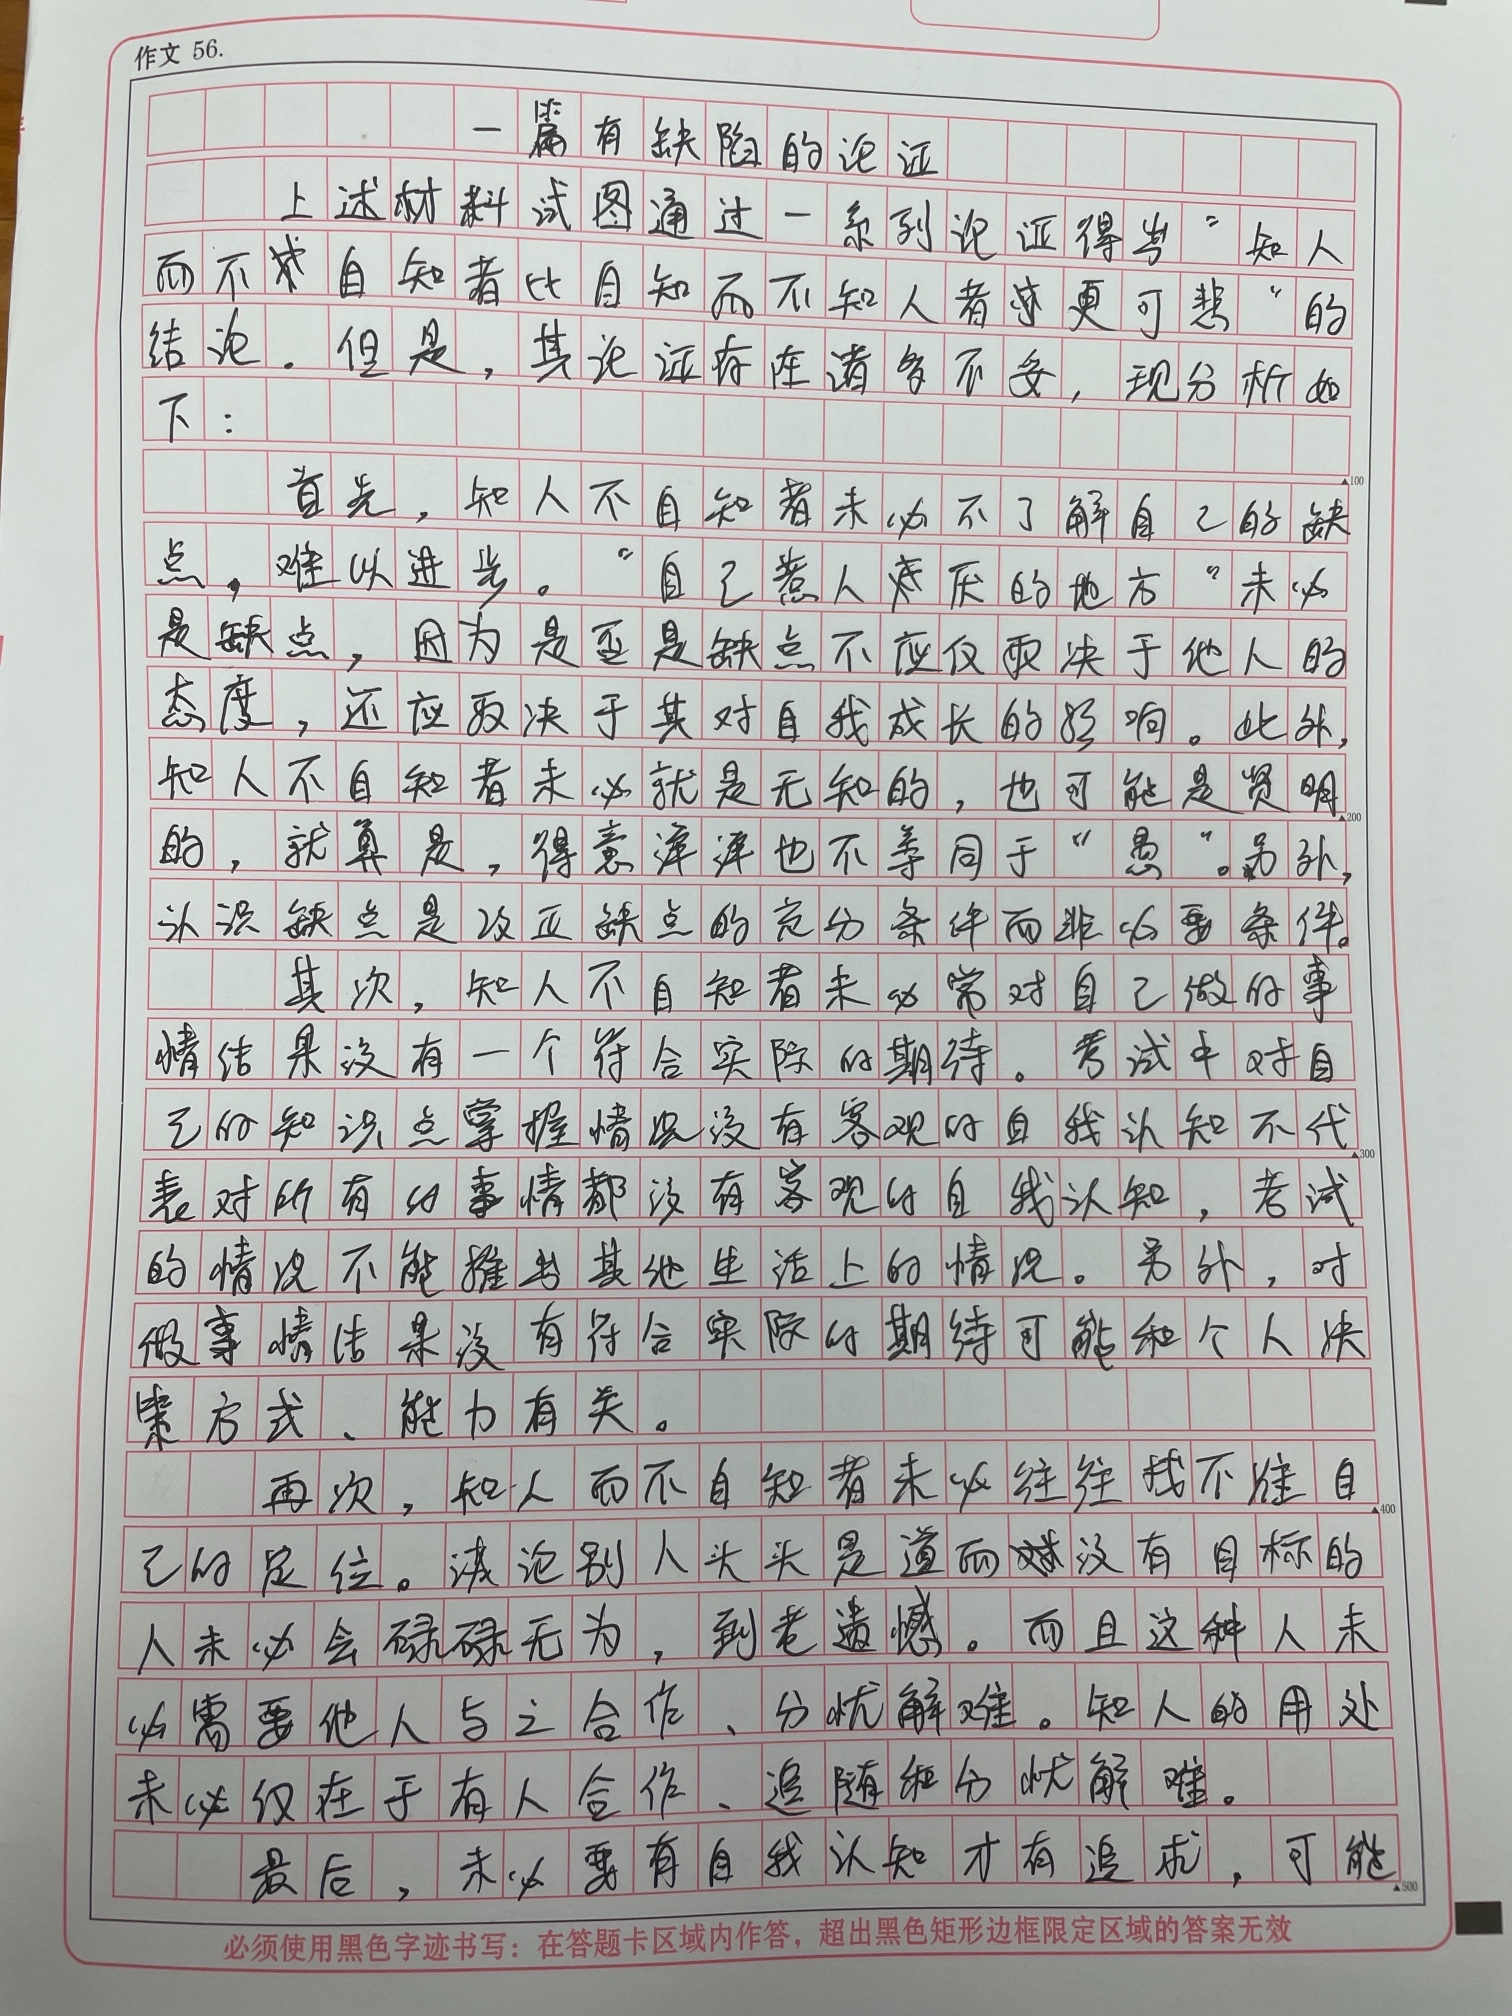 作文 56.
一篇有缺陷的论证
上述材料试图通过一系列论证得出“知人
而不自知者比自知而不知人者更可悲”的
结论。但是，其论证存在诸多不妥，现分析如
下：
首先，知人不自知者未必不了解自己的缺
100
点，难以进步。“自己惹人厌的地方”未必
是缺点，因为是否是缺点不应仅取决于他人的
态度，还应取决于其对自我成长的影响。此外，
知人不自知者未必就是无知的，也可能是贤明
200
的，就算是，得意洋洋也不等同于“愚”。另外，
认识缺点是改正缺点的充分条件而非必要条件。
其次，知人不自知者未必常对自己做的事
情结果没有一个符合实际的期待。考试中对自
己的知识点掌握情况没有客观的自我认知不代
300
表对所有的事情都没有客观的自我认知，考试
的情况不能推出其他生活上的情况。另外，对
做事情结果没有符合实际的期待可能和个人决
策方式、能力有关。
再次，知人而不自知者未必往往找不准自
400
己的定位。谈论别人头头是道而没有目标的
人未必会碌碌无为，到老遗憾。而且这种人未
必需要他人与之合作、分忧解难。知人的用处
未必仅在于有人合作、追随和分忧解难。
最后，未必要有自我认知才有追求，可能
500
必须使用黑色字迹书写：在答题卡区域内作答，超出黑色矩形边框限定区域的答案无效